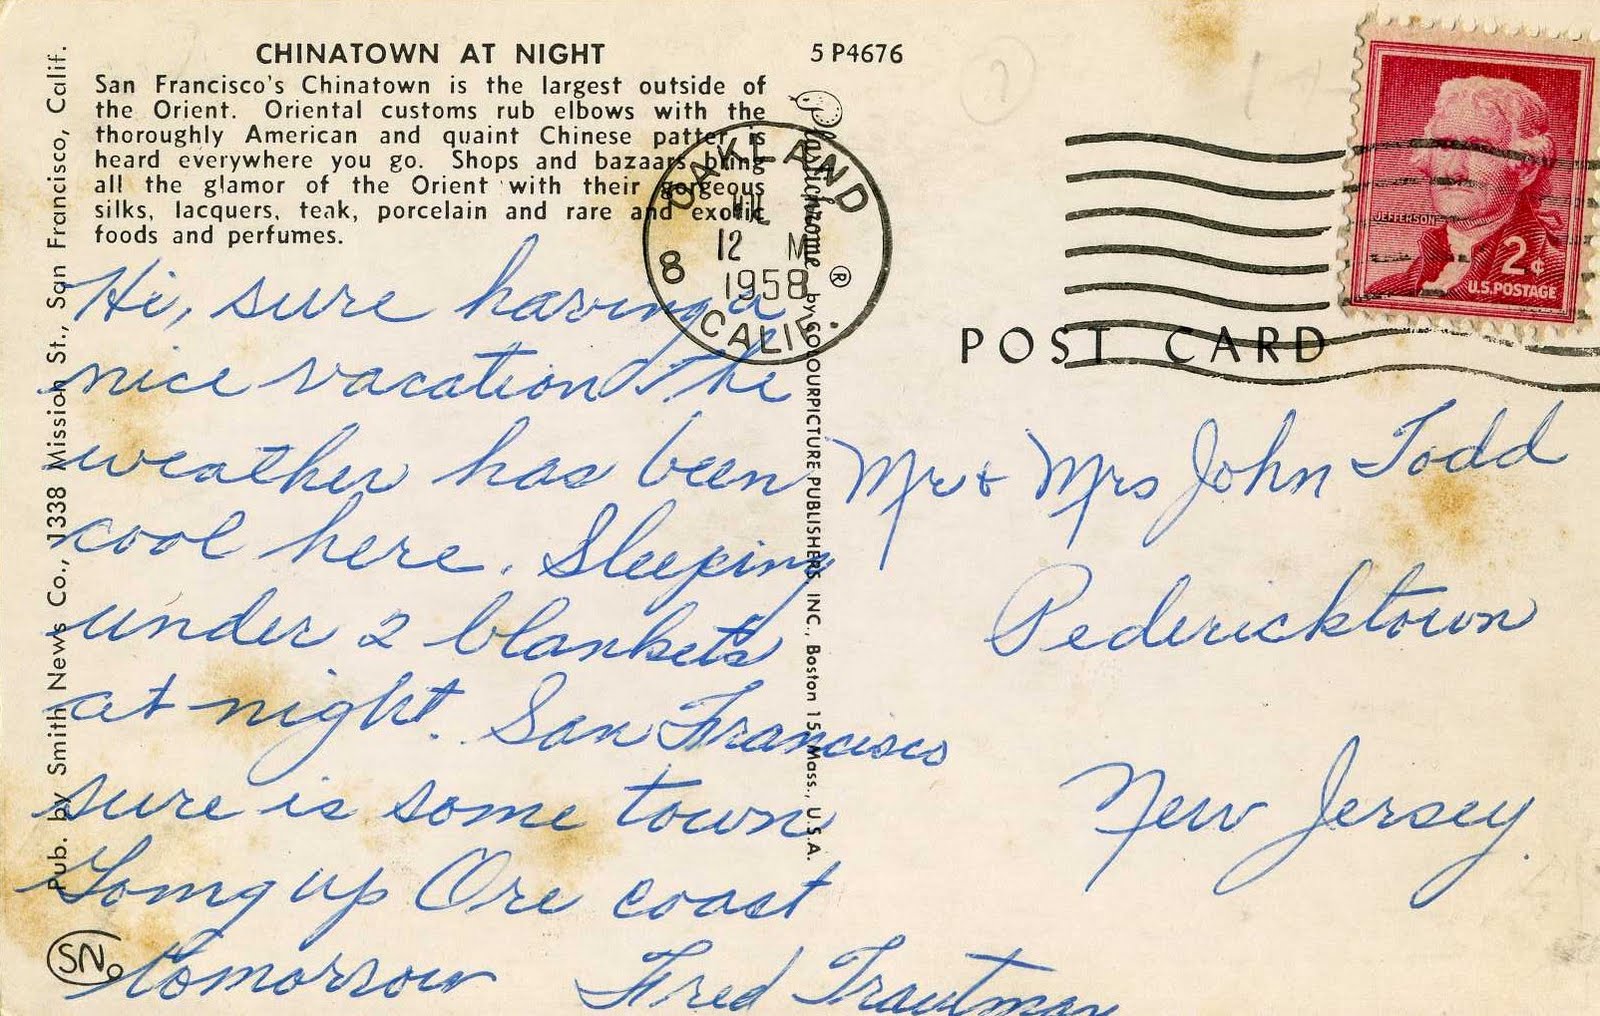 CHINATOWN AT NIGHT
San Francisco's Chinatown is the largest outside of
the Orient. Oriental customs rub elbows with the
thoroughly American and quaint Chinese patter is
heard everywhere you go. Shops and bazaars bring
all the glamor of the Orient with their gorgeous
silks, lacquers, teak, porcelain and rare and exotic
foods and perfumes.
Pub. by Smith News Co., 1338 Mission St., San Francisco, Calif.
Hi, sure having a
nice vacation The
weather has been
cool here. Sleeping
under 2 blankets
at night. San Francisco
sure is some town
Going up Ore coast
tomorrow Fred Trautman
SN
5 P4676
Plastichrome ® by COLOURPICTURE PUBLISHERS, INC., Boston 15, Mass., U.S.A.
OAKLAND
12 M
8
1958
CALIF.
JEFFERSON
2¢
U.S. POSTAGE
POST CARD
Mr & Mrs John Todd
Pedericktown
New Jersey.